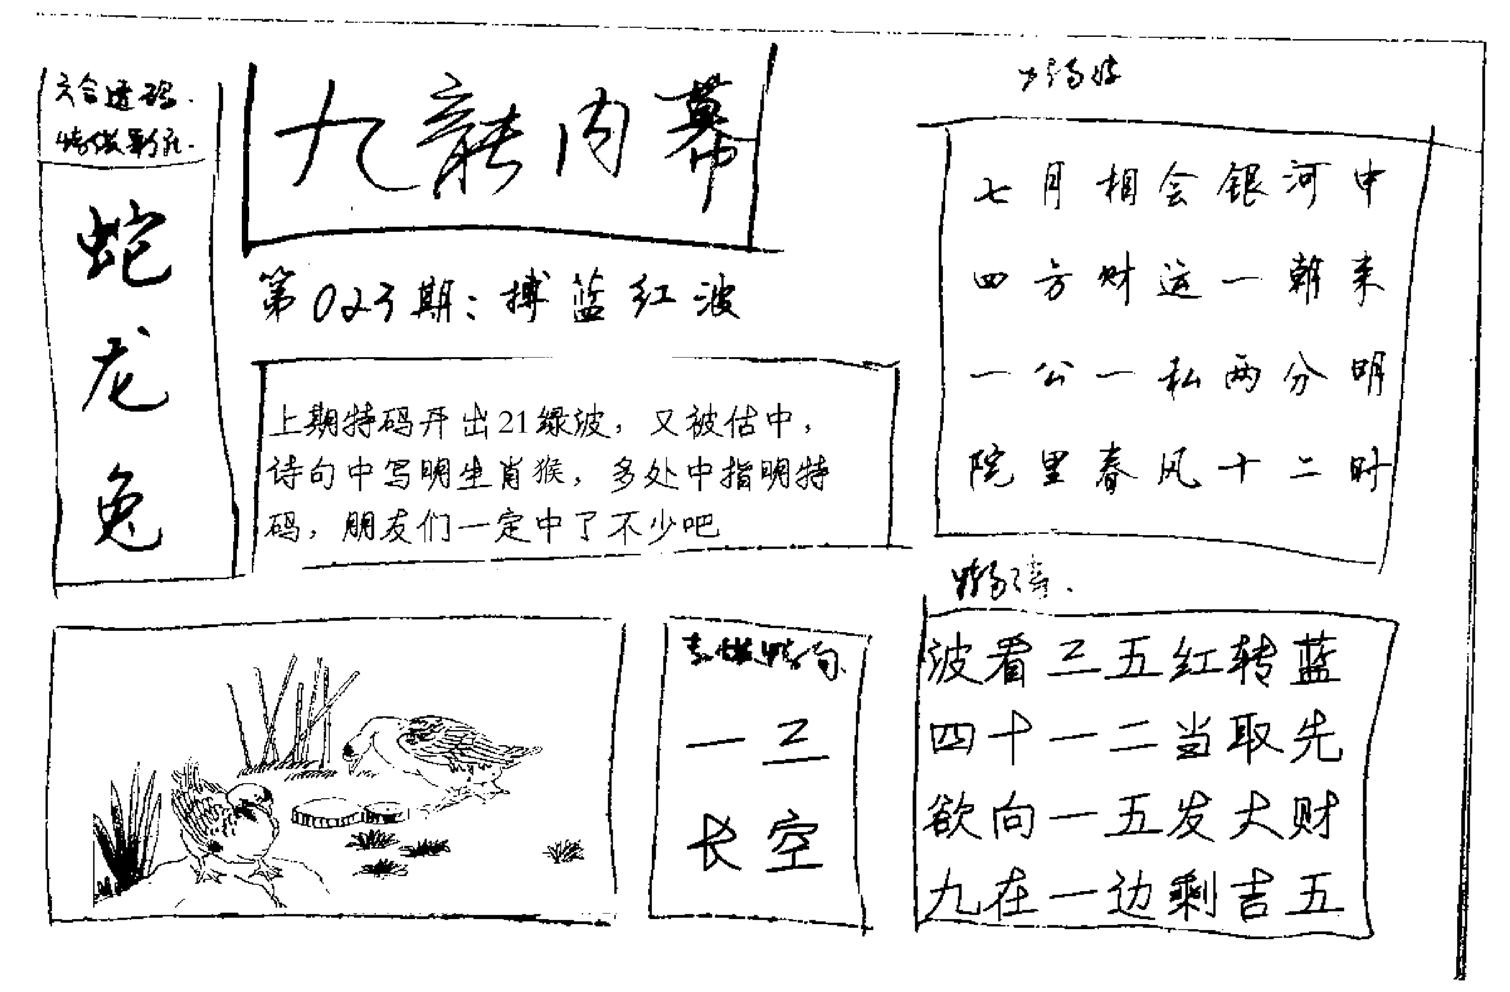 六合透码.
蛇
龙
兔
九龍内幕
第023期：搏蓝红波
上期特码开出21绿波，又被估中，
诗句中写明生肖猴，多处中指明特
码，朋友们一定中了不少吧
七月相会银河中
四方财运一朝来
一公一私两分明
院里春风十二时
波看三五红转蓝
四十一二当取先
欲向一五发大财
九在一边剩吉五
一三
长空